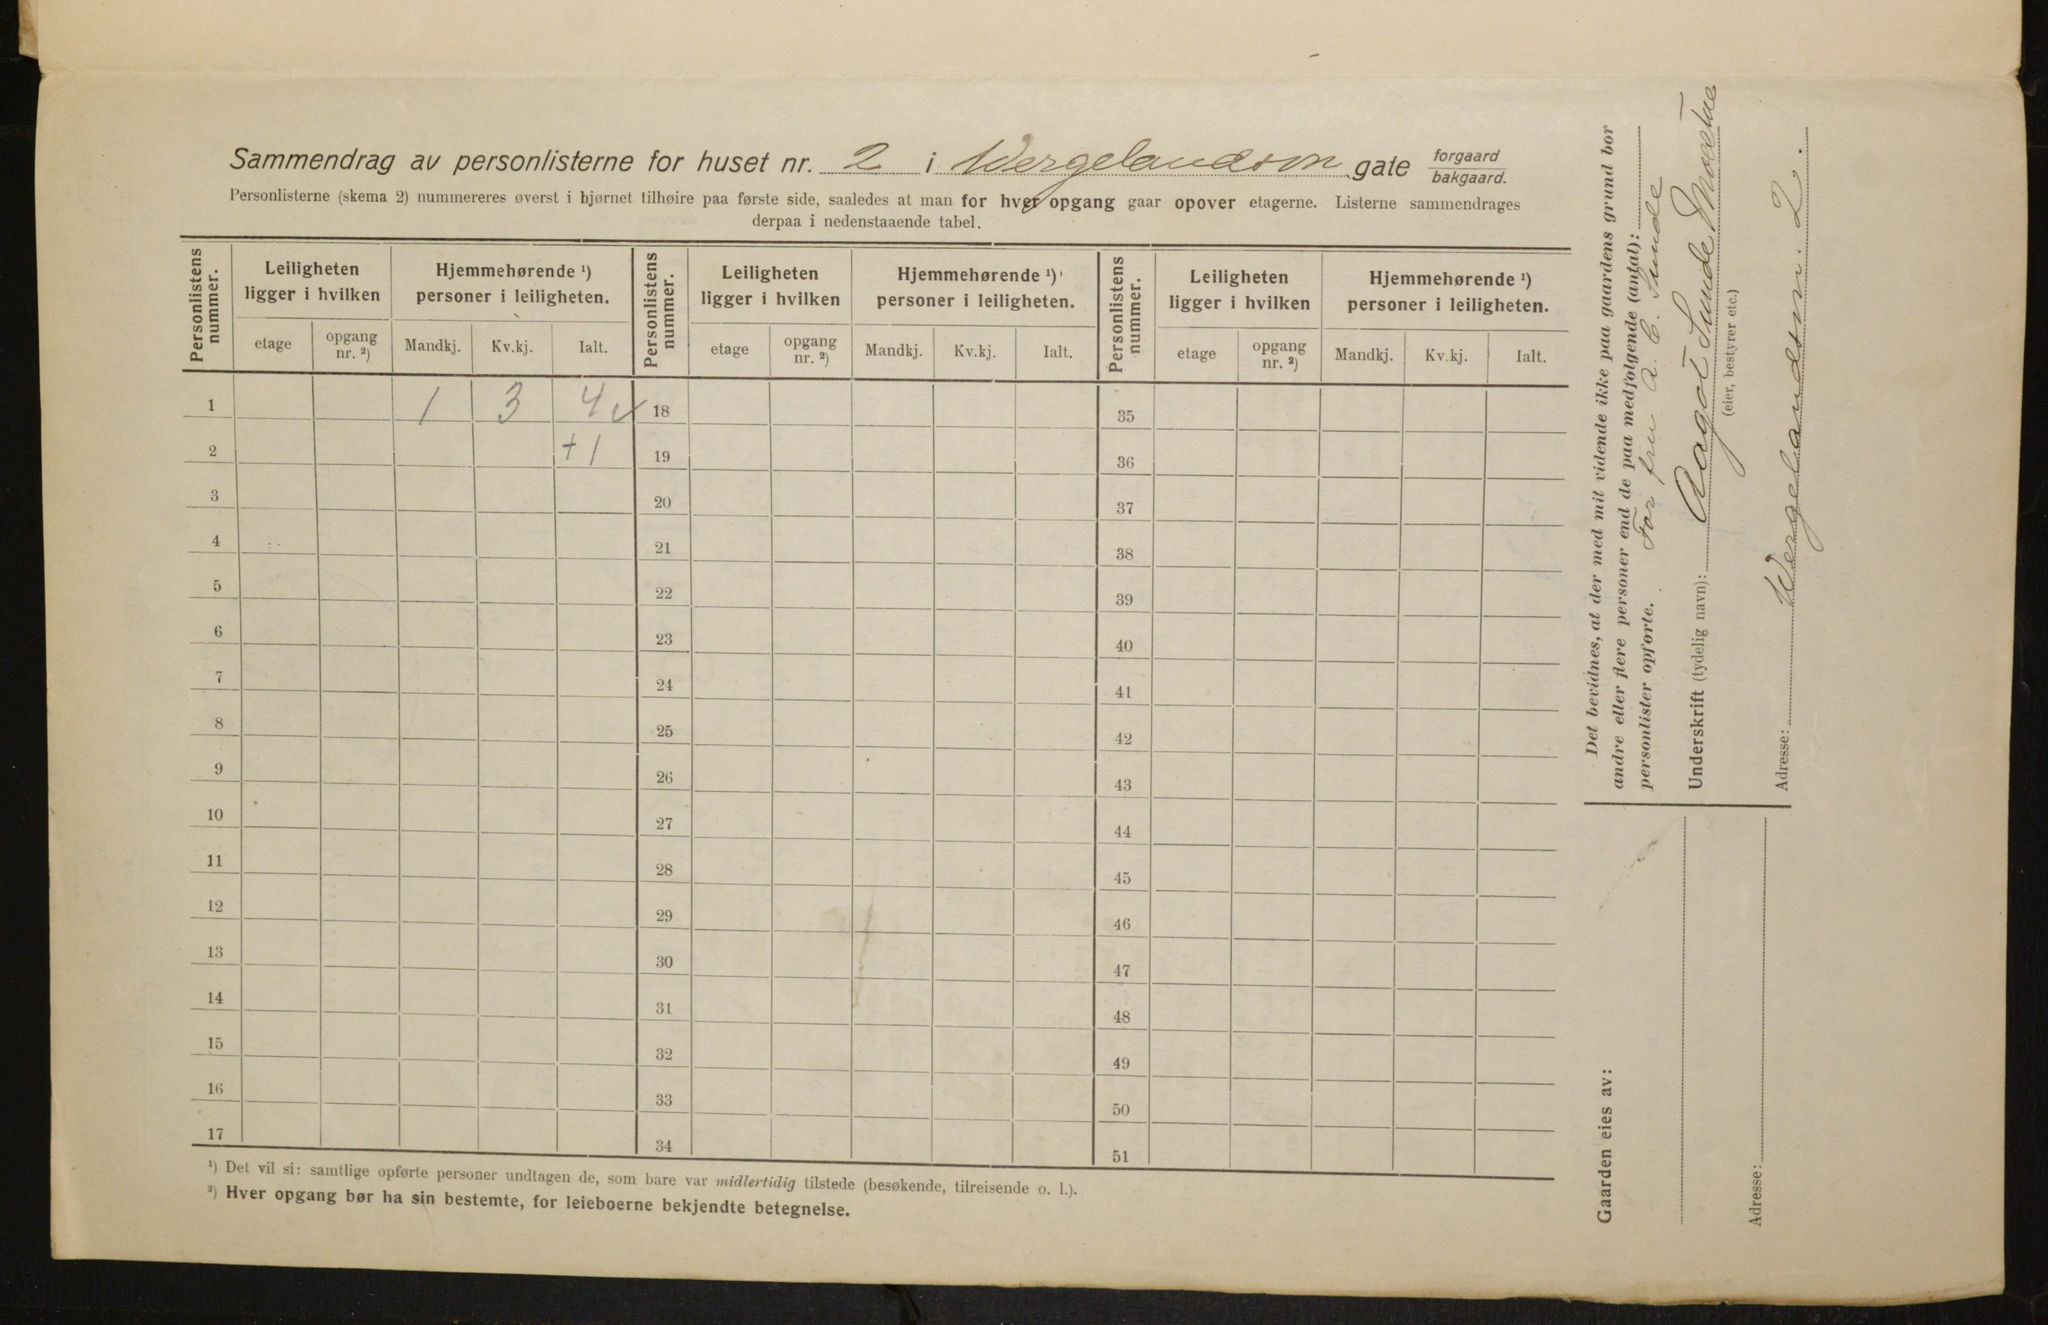 Sammendrag av personlisterne for huset nr. 2 i Wergelandsvn gate forgaard
bakgaard.
Personlisterne (skema 2) nummereres øverst i hjørnet tilhøire paa første side, saaledes at man for hver opgang gaar opover etagerne. Listerne sammendrages
derpaa i nedenstaaende tabel.
Personlistens nummer. Leiligheten ligger i hvilken Hjemmehørende ¹) personer i leiligheten. Personlistens nummer. Leiligheten ligger i hvilken Hjemmehørende ¹) personer i leiligheten. Personlistens nummer. Leiligheten ligger i hvilken Hjemmehørende ¹) personer i leiligheten.
etage opgang nr. ²) Mandkj. Kv.kj. Ialt. etage opgang nr. ²) Mandkj. Kv.kj. Ialt. etage opgang nr. ²) Mandkj. Kv.kj. Ialt.
1 1 3 4 ✓ 18 35
2 +1 19 36
3 20 37
4 21 38
5 22 39
6 23 40
7 24 41
8 25 42
9 26 43
10 27 44
11 28 45
12 29 46
13 30 47
14 31 48
15 32 49
16 33 50
17 34 51
¹) Det vil si: samtlige opførte personer undtagen de, som bare var midlertidig tilstede (besøkende, tilreisende o. l.).
²) Hver opgang bør ha sin bestemte, for leieboerne bekjendte betegnelse.
Det bevidnes, at der med mit vidende ikke paa gaardens grund bor
andre eller flere personer end de paa medfølgende (antal):
personlister opførte. For fru A. E. Sunde
Underskrift (tydelig navn): Aagot Sunde
(eier, bestyrer etc.)
Adresse: Wergelandsvn. 2.
Gaarden eies av:
Adresse: